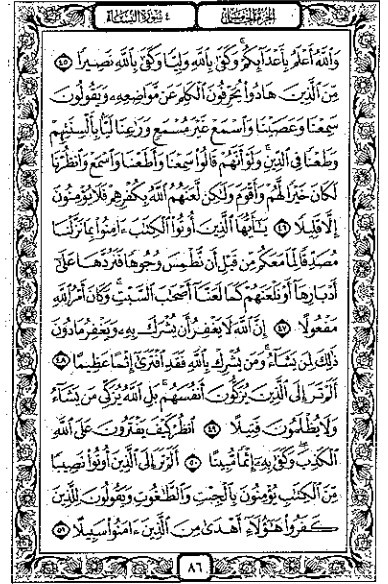 ٤ سورة النساء
الجزء الخامس
وَٱللَّهُ أَعْلَمُ بِأَعْدَآئِكُمْ ۚ وَكَفَىٰ بِٱللَّهِ وَلِيًّا وَكَفَىٰ بِٱللَّهِ نَصِيرًا ٤٥
مِّنَ ٱلَّذِينَ هَادُوا۟ يُحَرِّفُونَ ٱلْكَلِمَ عَن مَّوَاضِعِهِۦ وَيَقُولُونَ
سَمِعْنَا وَعَصَيْنَا وَٱسْمَعْ غَيْرَ مُسْمَعٍ وَرَٰعِنَا لَيًّۢا بِأَلْسِنَتِهِمْ
وَطَعْنًا فِى ٱلدِّينِ ۚ وَلَوْ أَنَّهُمْ قَالُوا۟ سَمِعْنَا وَأَطَعْنَا وَٱسْمَعْ وَٱنظُرْنَا
لَكَانَ خَيْرًا لَّهُمْ وَأَقْوَمَ وَلَٰكِن لَّعَنَهُمُ ٱللَّهُ بِكُفْرِهِمْ فَلَا يُؤْمِنُونَ
إِلَّا قَلِيلًا ٤٦ يَٰٓأَيُّهَا ٱلَّذِينَ أُوتُوا۟ ٱلْكِتَٰبَ ءَامِنُوا۟ بِمَا نَزَّلْنَا
مُصَدِّقًا لِّمَا مَعَكُم مِّن قَبْلِ أَن نَّطْمِسَ وُجُوهًا فَنَرُدَّهَا عَلَىٰٓ
أَدْبَارِهَآ أَوْ نَلْعَنَهُمْ كَمَا لَعَنَّآ أَصْحَٰبَ ٱلسَّبْتِ ۚ وَكَانَ أَمْرُ ٱللَّهِ
مَفْعُولًا ٤٧ إِنَّ ٱللَّهَ لَا يَغْفِرُ أَن يُشْرَكَ بِهِۦ وَيَغْفِرُ مَا دُونَ
ذَٰلِكَ لِمَن يَشَآءُ ۚ وَمَن يُشْرِكْ بِٱللَّهِ فَقَدِ ٱفْتَرَىٰٓ إِثْمًا عَظِيمًا ٤٨
أَلَمْ تَرَ إِلَى ٱلَّذِينَ يُزَكُّونَ أَنفُسَهُم ۚ بَلِ ٱللَّهُ يُزَكِّى مَن يَشَآءُ
وَلَا يُظْلَمُونَ فَتِيلًا ٤٩ ٱنظُرْ كَيْفَ يَفْتَرُونَ عَلَى ٱللَّهِ
ٱلْكَذِبَ ۖ وَكَفَىٰ بِهِۦٓ إِثْمًا مُّبِينًا ٥٠ أَلَمْ تَرَ إِلَى ٱلَّذِينَ أُوتُوا۟ نَصِيبًا
مِّنَ ٱلْكِتَٰبِ يُؤْمِنُونَ بِٱلْجِبْتِ وَٱلطَّٰغُوتِ وَيَقُولُونَ لِلَّذِينَ
كَفَرُوا۟ هَٰٓؤُلَآءِ أَهْدَىٰ مِنَ ٱلَّذِينَ ءَامَنُوا۟ سَبِيلًا ٥١
٨٦